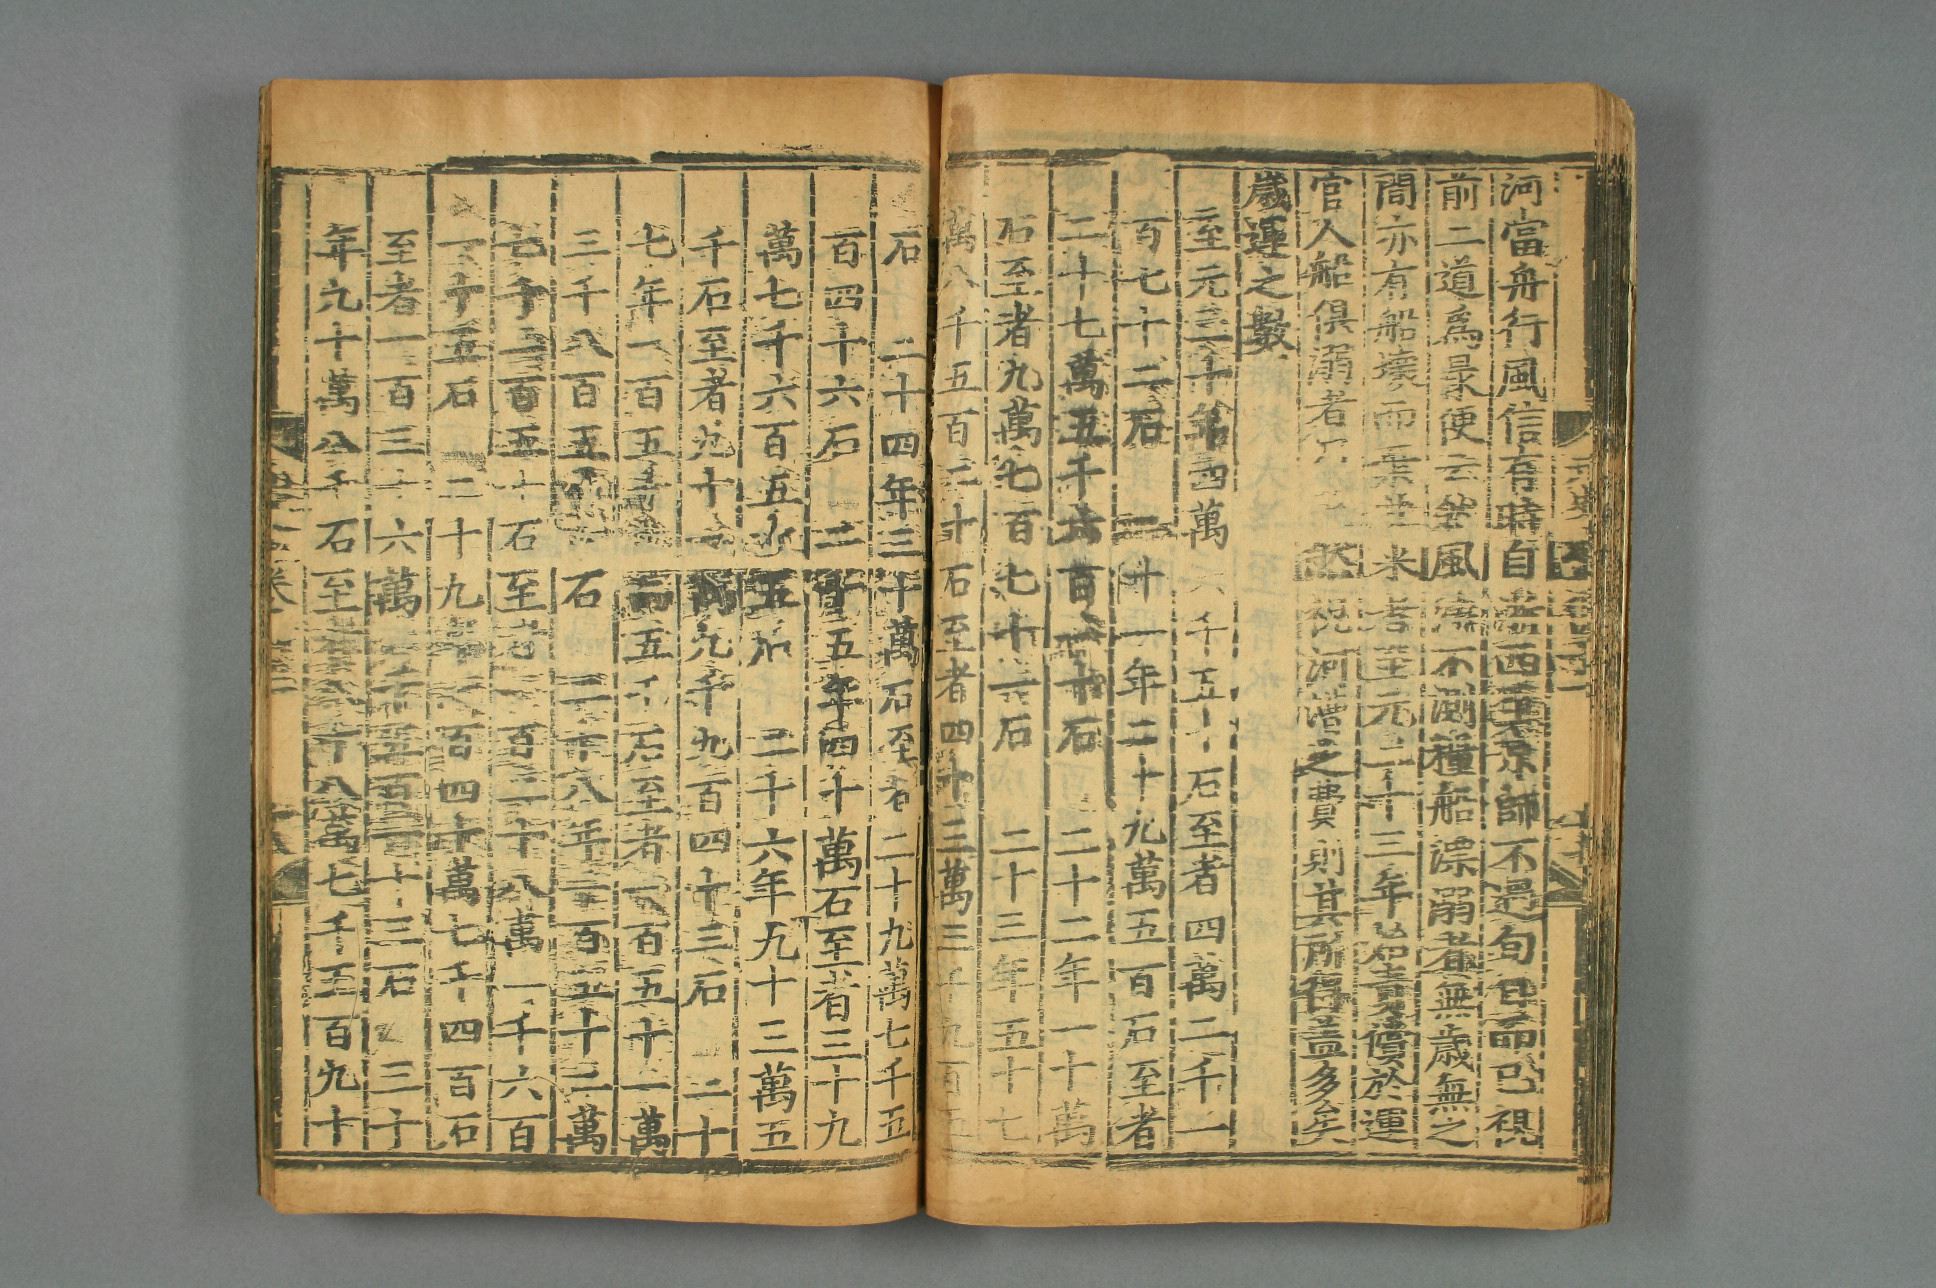 河當舟行風信有時自浙西至京師不過旬日而已視
前二道爲最便云然風濤不測糧船漂溺者無歲無之
間亦有船壞而棄其米者至元二十三年始責償於運
官人船俱溺者乃免然視河漕之費則其所得蓋多矣
歲運之數
至元二十年四萬六千五十石至者四萬二千一
百七十二石 二十一年二十九萬五百石至者
二十七萬五千六百一十石 二十二年一十萬
石至者九萬七百七十一石 二十三年五十七
萬八千五百二十石至者四十三萬三千九百五
石 二十四年三十萬石至者二十九萬七千五
百四十六石 二十五年四十萬石至者三十九
萬七千六百五十五石 二十六年九十三萬五
千石至者九十一萬九千九百四十三石 二十
七年一百五十九萬五千石至者一百五十一萬
三千八百五十石 二十八年一百五十二萬
七千二百五十石至者一百二十八萬一千六百
一十五石 二十九年一百四十萬七千四百石
至者一百三十六萬一千五百一十三石 三十
年九十萬八千石至者八十八萬七千五百九十